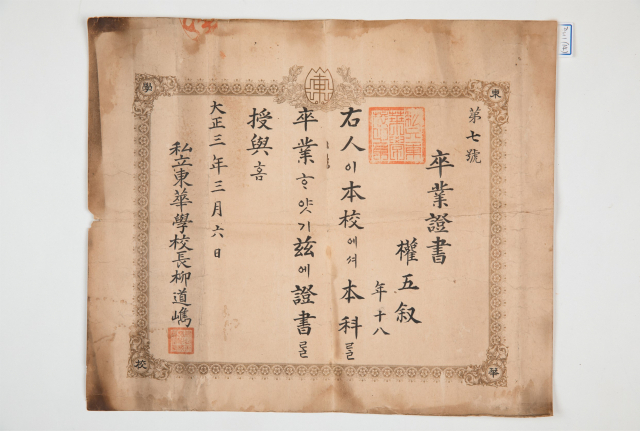 第七號
卒業證書
權五叙
年十八
右人이本校에셔本科를
卒業ᄒᆞ얏기玆에證書를
授與홈
大正三年三月六日
私立東華學校長柳道嶲
東
華
學
校